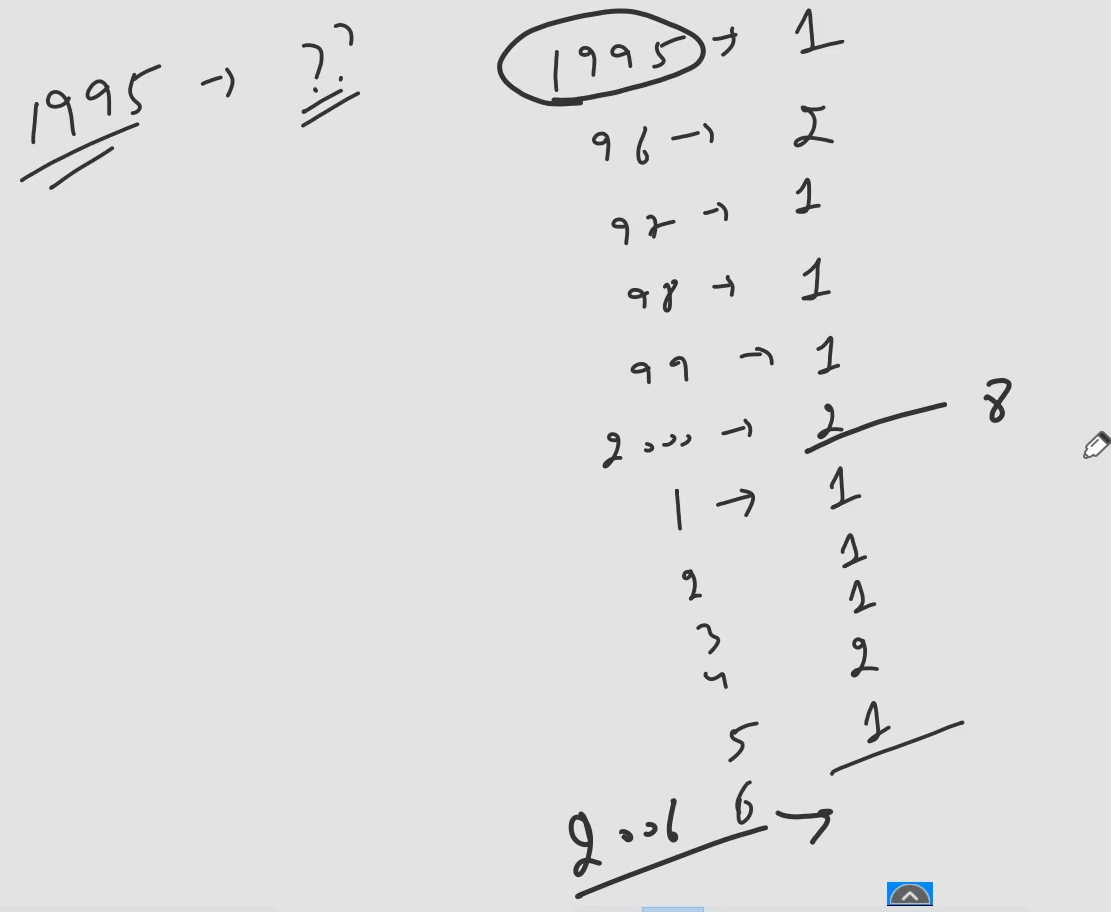 1995 → ??
1995 → 1
96 → 2
97 → 1
98 → 1
99 → 1
2000 → 2 8
1 → 1
2 1
3 1
4 2
5 1
2006 6 →